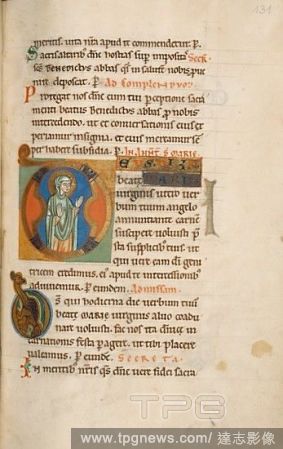 131
meritus. vita nr̄a apud te commendetur. P.
Sacrificiis dn̄e hostias sup impositas Secr̄.
sc̄s Benedictus abbas qs in salutē nobis ꝓue
nire deposcat. P. Ad complendū.
Protegat nos dn̄e cum tui ꝑceptione sacra
menti beatus Benedictus abbas ꝓ nobis
intercedendo. ut et conuersationis eius ex
ꝑiamur insignia. et eius mereamur sē
per habere subsidia. P. In Annt̄. S. Marie.
DEUS QUI
beate MARIE
virginis utero ver
bum tuum angelo
annuntiante carnē
suscipere voluisti p̄
sta supplicibus tuis. ut
qui vere eam dī geni
tricem credimus. ei apud te intercessionibus
adiuuemur. P. eundem. Ad missam.
Ds̄ qui hodierna die verbum tuū
beatę MARIE virginis aluo coadu
nare voluisti. fac nos ita dn̄icę in
carnationis festa ꝑagere. ut tibi placere
valeamus. P. eundē. SECRETA
In mentibus nr̄is qs dn̄e vere fidei sacra
TPG
www.tpgnews.com/達志影像